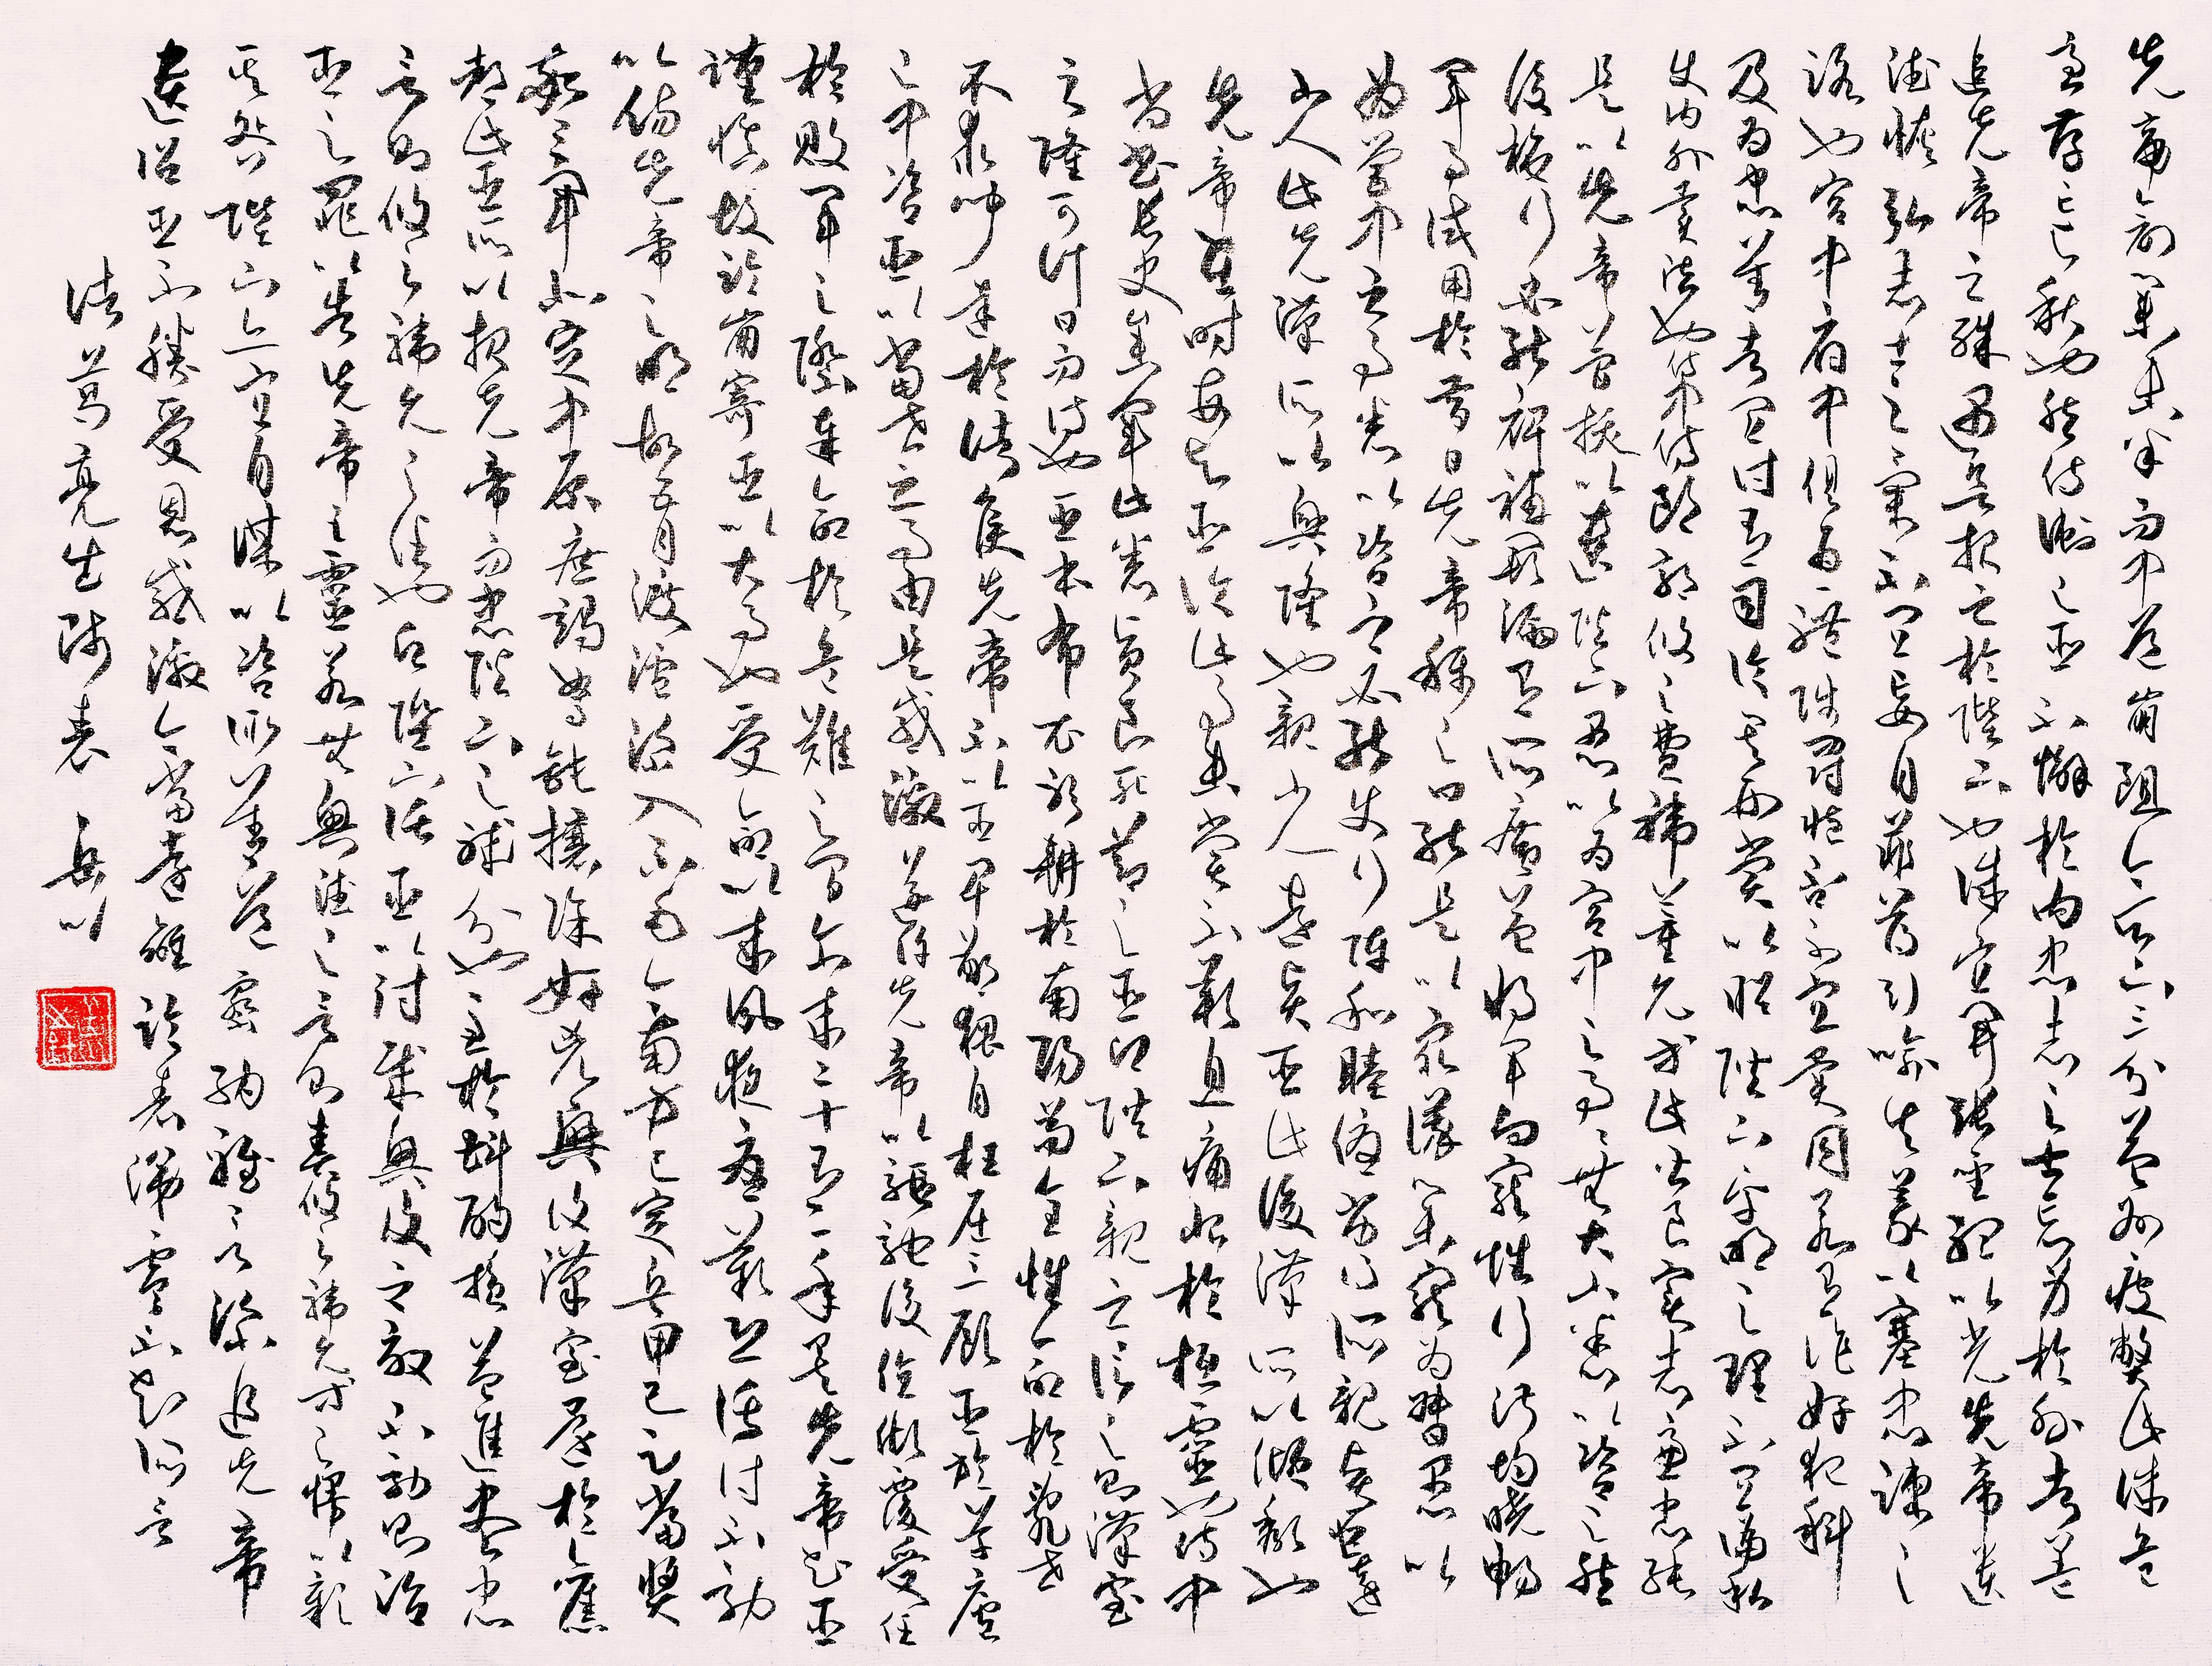 先帝創業未半而中道崩殂今天下三分益州疲弊此誠危
急存亡之秋也然侍衛之臣不懈於內忠志之士忘身於外者蓋
追先帝之殊遇欲報之於陛下也誠宜開張聖聽以光先帝遺
德恢弘志士之氣不宜妄自菲薄引喻失義以塞忠諫之
路也宮中府中俱為一體陟罰臧否不宜異同若有作奸犯科
及為忠善者宜付有司論其刑賞以昭陛下平明之理不宜偏私
使內外異法也侍中侍郎郭攸之費禕董允等此皆良實志慮忠純
是以先帝簡拔以遺陛下愚以為宮中之事事無大小悉以咨之然
後施行必能裨補闕漏有所廣益將軍向寵性行淑均曉暢
軍事試用於昔日先帝稱之曰能是以眾議舉寵為督愚以
為營中之事悉以咨之必能使行陣和睦優劣得所親賢臣遠
小人此先漢所以興隆也親小人遠賢臣此後漢所以傾頹也
先帝在時每與臣論此事未嘗不歎息痛恨於桓靈也侍中
尚書長史參軍此悉貞良死節之臣願陛下親之信之則漢室
之隆可計日而待也臣本布衣躬耕於南陽苟全性命於亂世
不求聞達於諸侯先帝不以臣卑鄙猥自枉屈三顧臣於草廬
之中咨臣以當世之事由是感激遂許先帝以驅馳後值傾覆受任
於敗軍之際奉命於危難之間爾來二十有一年矣先帝知臣
謹慎故臨崩寄臣以大事也受命以來夙夜憂歎恐託付不效
以傷先帝之明故五月渡瀘深入不毛今南方已定兵甲已足當獎
率三軍北定中原庶竭駑鈍攘除奸凶興復漢室還於舊
都此臣所以報先帝而忠陛下之職分也至於斟酌損益進盡忠
言則攸之禕允之責也願陛下託臣以討賊興復之效不效則治
臣之罪以告先帝之靈若無興德之言則責攸之禕允等之慢以彰
其咎陛下亦宜自謀以咨諏善道察納雅言深追先帝
遺詔臣不勝受恩感激今當遠離臨表涕零不知所言
諸葛亮出師表